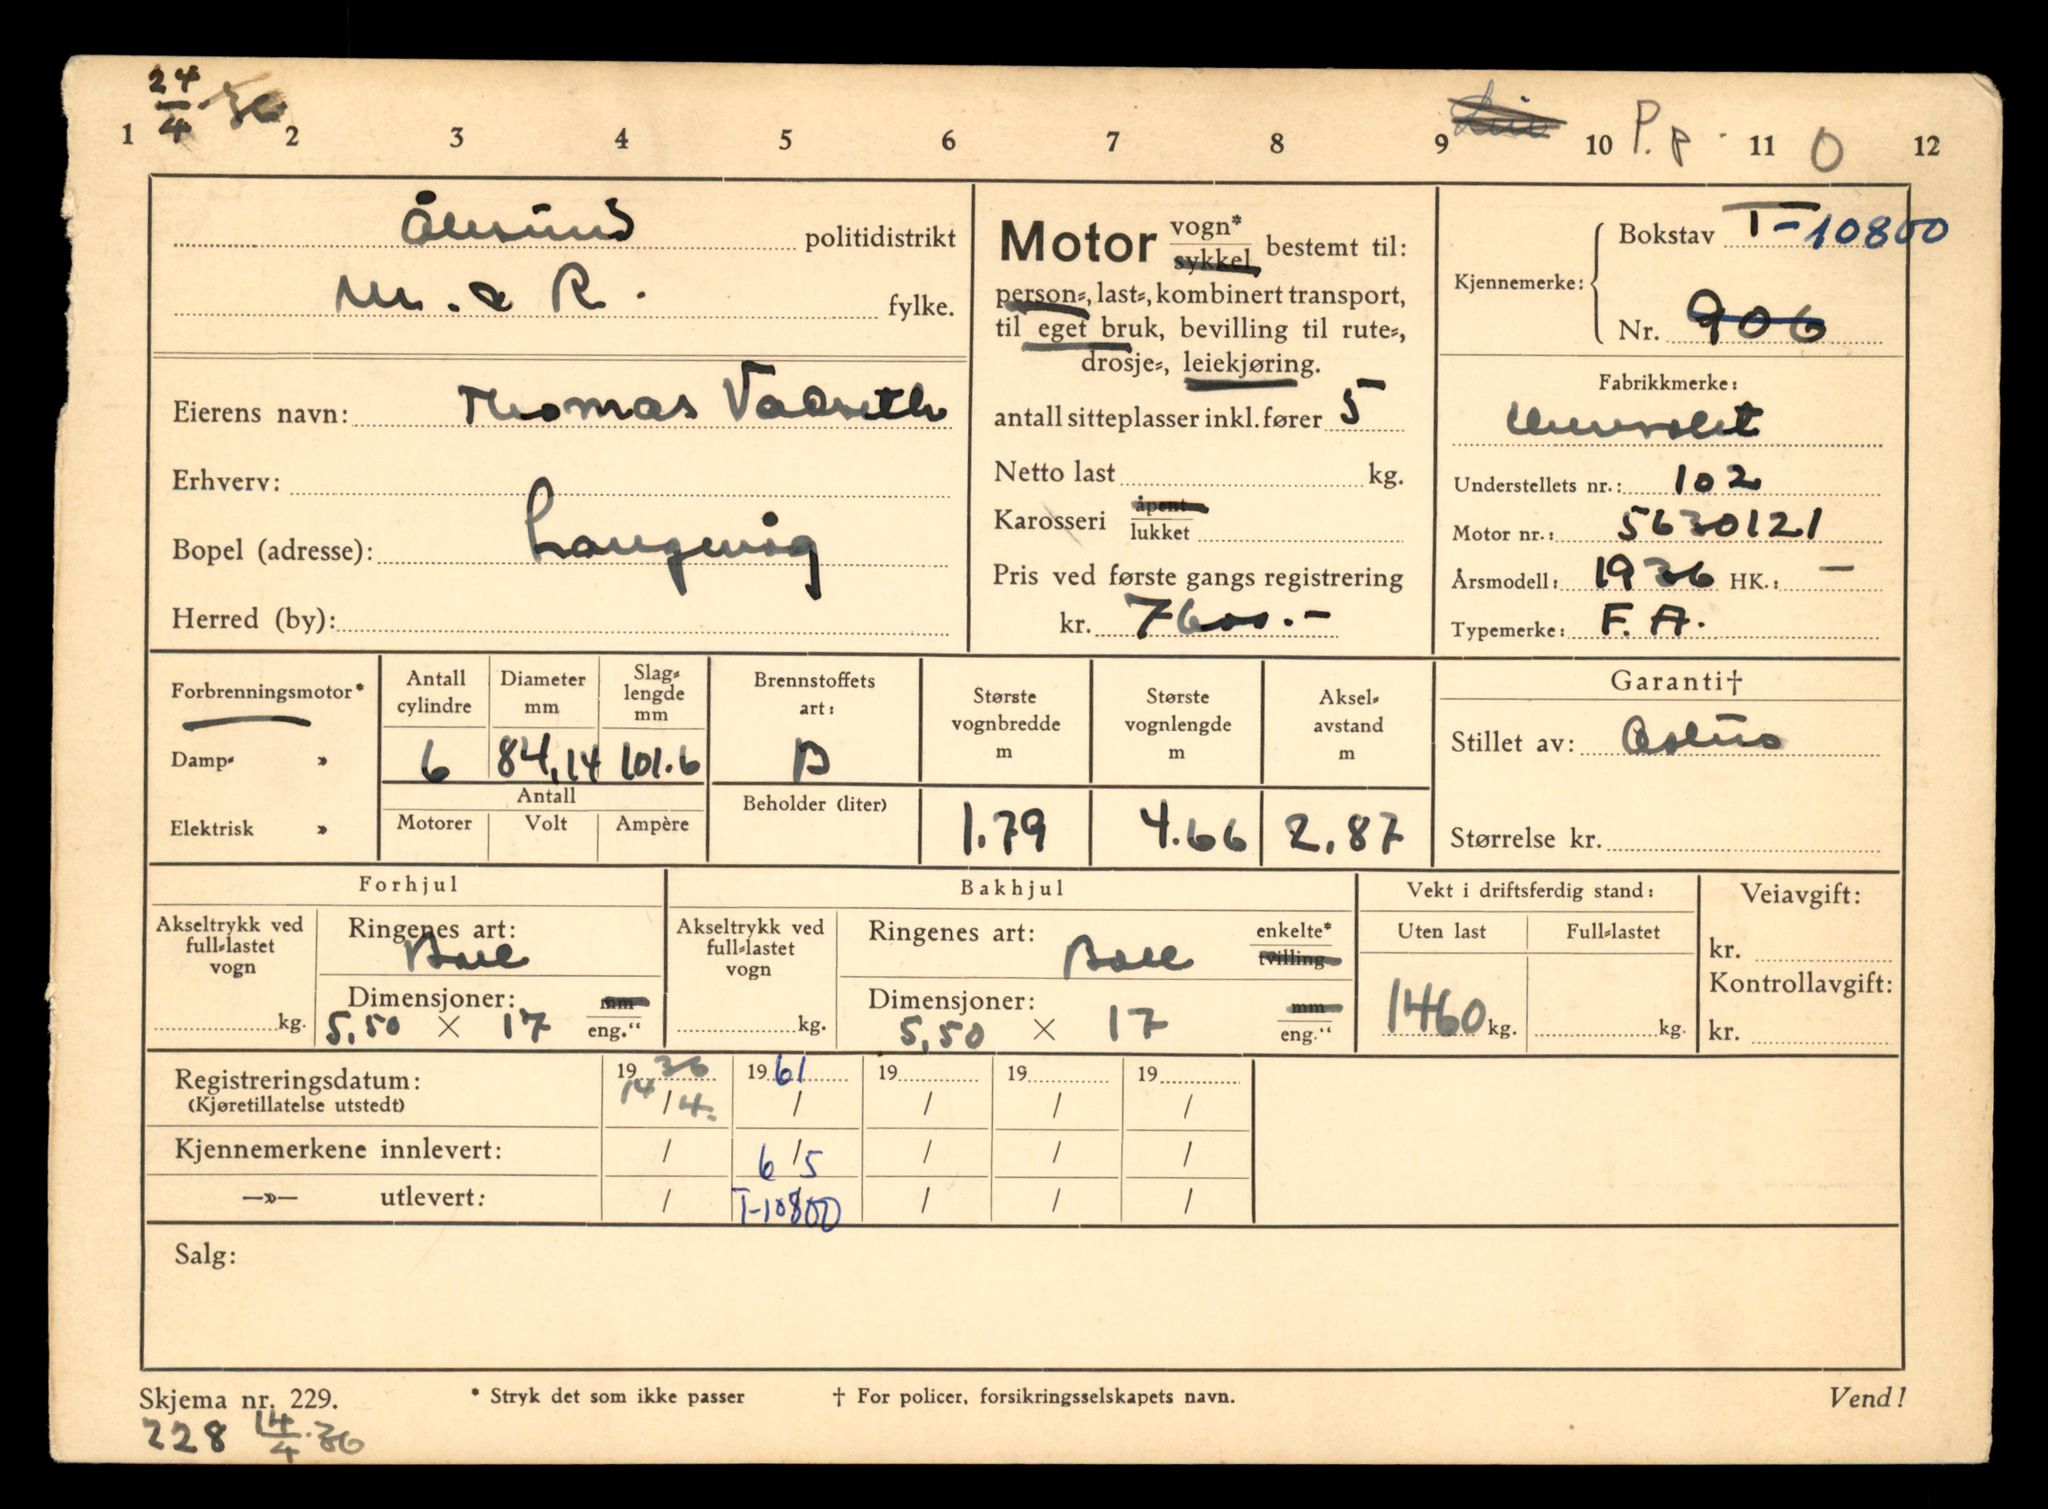 24/4.36
1 2 3 4 5 6 7 8 9 10 P.p. 11 0 12
Ålesund politidistrikt
M. & R. fylke.
Eierens navn: Thomas Vadseth
Erhverv:
Bopel (adresse): Langevåg
Herred (by):
Motor vogn* / sykkel bestemt til:
person-, last-, kombinert transport,
til eget bruk, bevilling til rute-,
drosje-, leiekjøring.
antall sitteplasser inkl. fører 5
Netto last kg.
Karosseri åpent / lukket
Pris ved første gangs registrering
kr. 7600.-
Kjennemerke: Bokstav T-10800
Nr. 906
Fabrikkmerke:
Chevrolet
Understellets nr.: 102
Motor nr.: 5630121
Årsmodell: 1936 HK.: —
Typemerke: F.A.
Forbrenningsmotor*
Damp- »
Elektrisk »
Antall cylindre
6
Diameter mm
84,14
Slag-lengde mm
101.6
Antall
Motorer Volt Ampère
Brennstoffets art:
B
Beholder (liter)
Største vognbredde m
1.79
Største vognlengde m
4.66
Aksel-avstand m
2.87
Garanti†
Stillet av:
Størrelse kr.
Forhjul
Akseltrykk ved full-lastet vogn
kg.
Ringenes art:
Ball
Dimensjoner: mm / eng."
5,50 × 17
Bakhjul
Akseltrykk ved full-lastet vogn
kg.
Ringenes art: enkelte* / tvilling
Ball
Dimensjoner: mm / eng."
5,50 × 17
Vekt i driftsferdig stand:
Uten last Full-lastet
1460 kg. kg.
Veiavgift:
kr.
Kontrollavgift:
kr.
Registreringsdatum: 1936 1961 19 19 19
(Kjøretillatelse utstedt) 14/4. / / / /
Kjennemerkene innlevert: / 6/5 / / /
—»— utlevert: / T-10800 / / /
Salg:
Skjema nr. 229. * Stryk det som ikke passer † For policer, forsikringsselskapets navn. Vend!
228 14/4.36